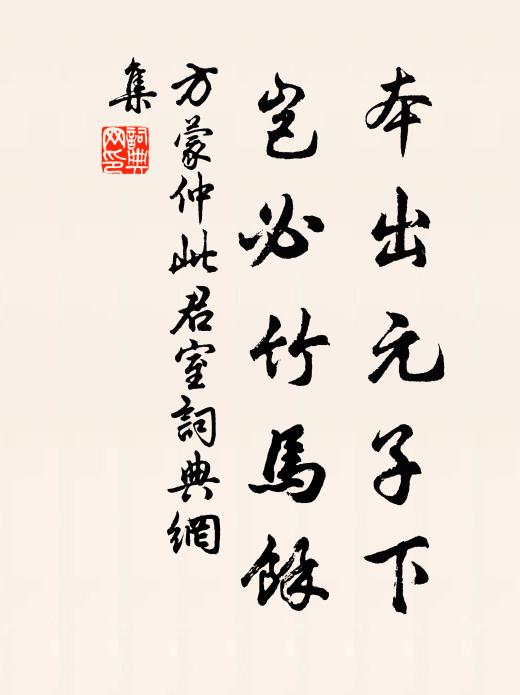 本出元子下
豈必竹馬餘
方蒙仲此君室詞典網
集
詞典
网印